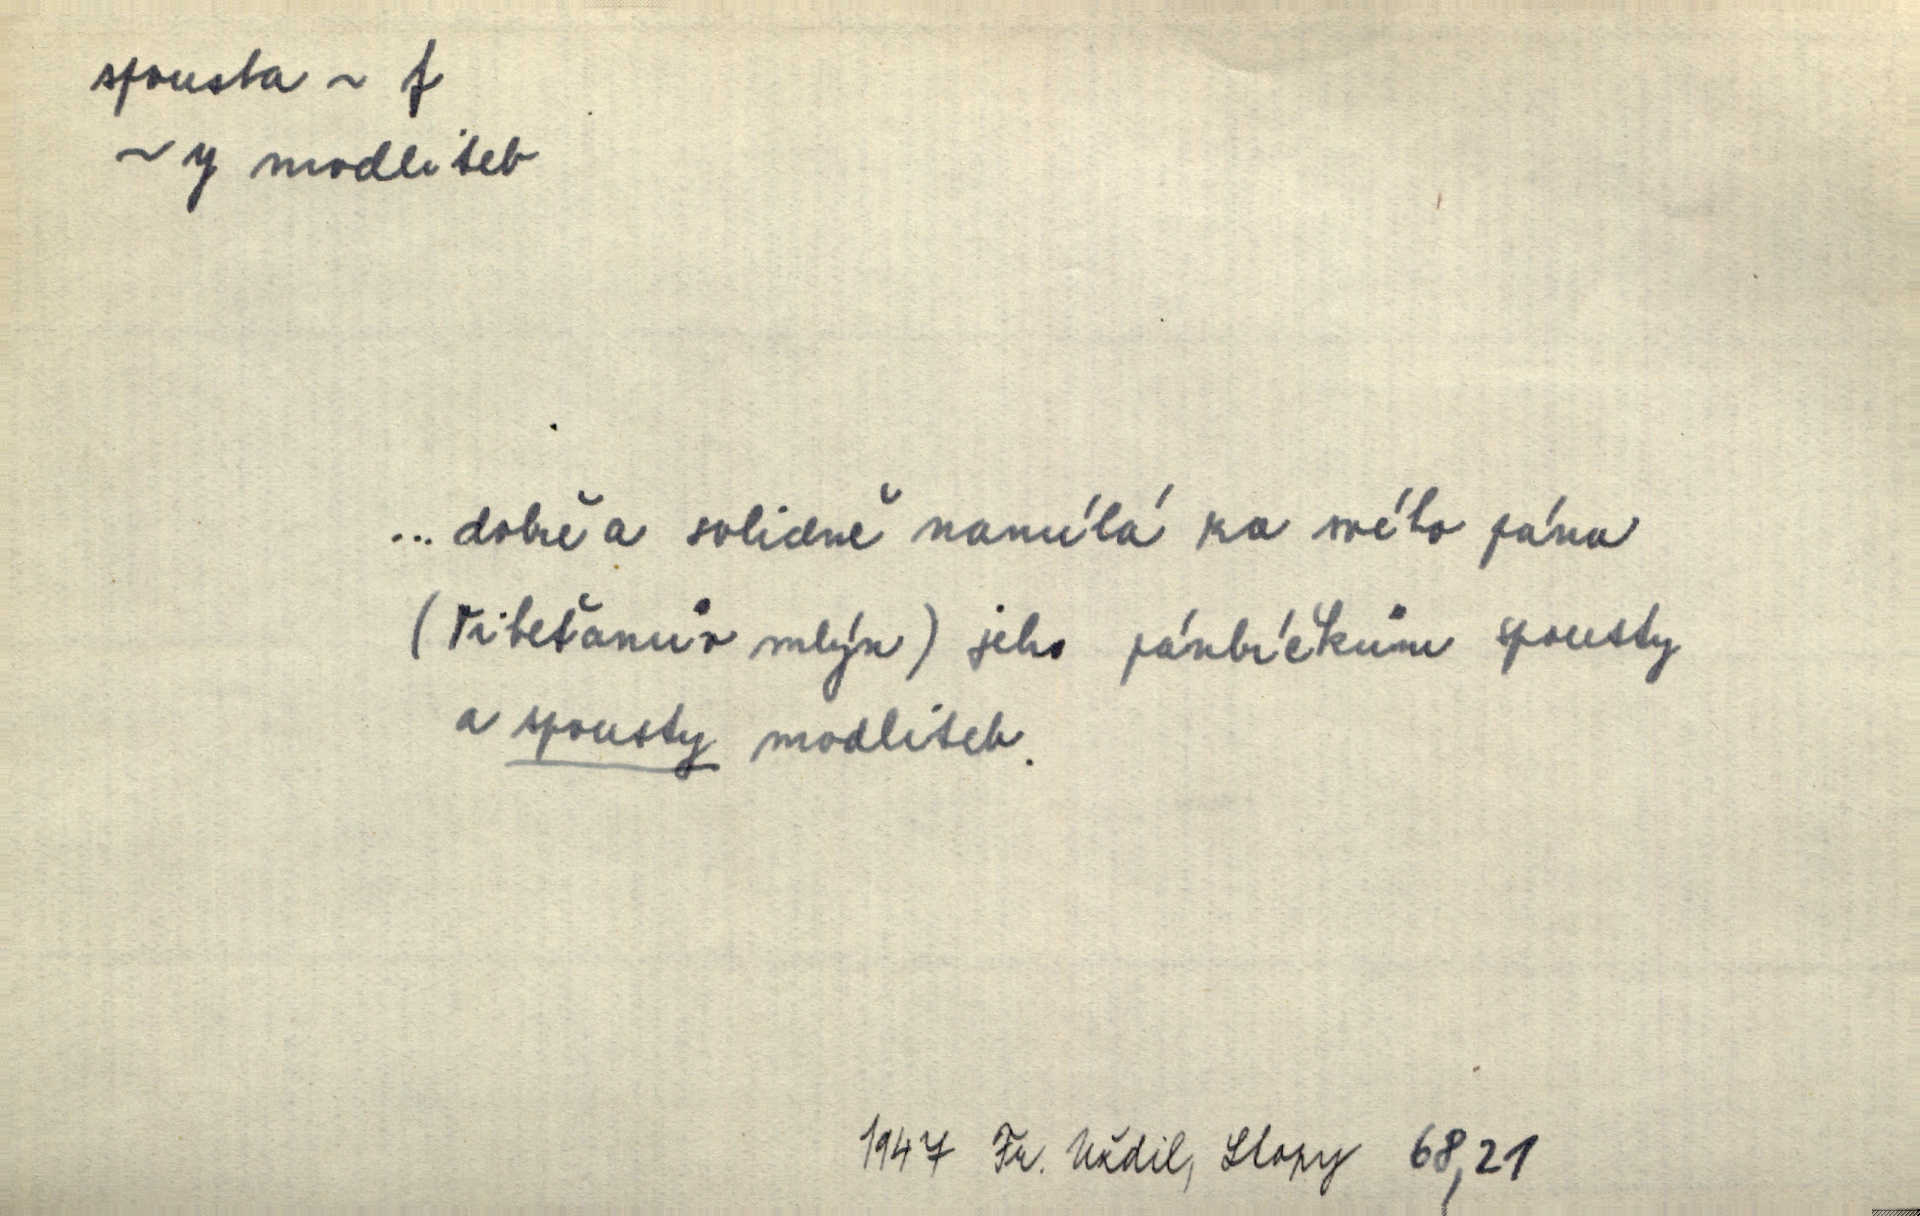 spousta ~ f
~y modliteb
... dobře a solidně namílá za svého pána
(Tibeťanův mlýn) jeho pánbíčkům spousty
a spousty modliteb.
1947 Fr. Uždil, Stopy 68,21